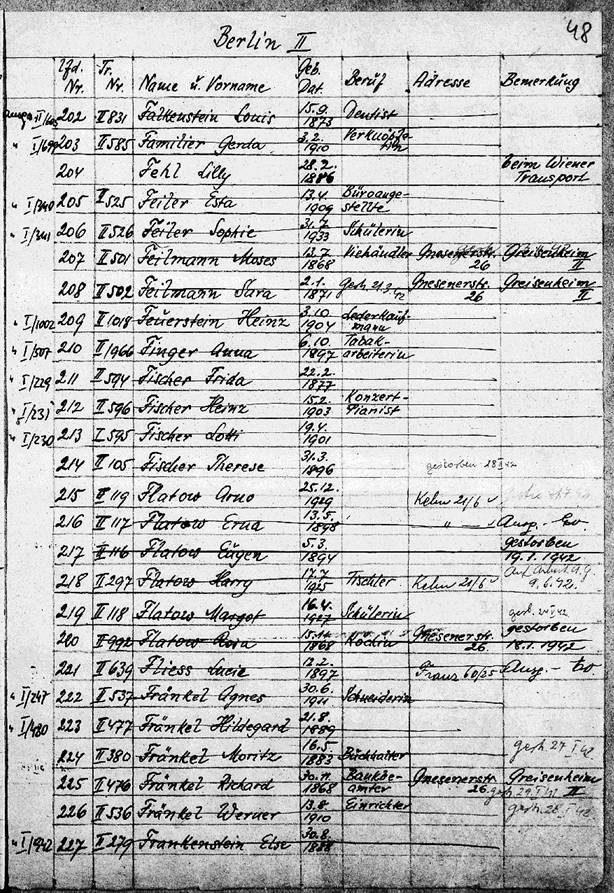 48
Berlin II
lfd. Nr. Tr. Nr. Name u. Vorname Geb. Dat. Beruf Adresse Bemerkung
202 II 831 Falkenstein Louis 15.9. 1873 Dentist
" I/694 203 II 585 Familier Gerda 3.2. 1910
204 Fehl Lilly 28.2. 1886 beim Wiener Transport
" I/340 205 II 525 Feiler Esta 13.4. 1909 Büroangestellte
" I/341 206 II 526 Feiler Sophie 31.7. 1933 Schülerin
207 II 501 Feilmann Moses 13.7. 1868 Viehändler Gnesenerstr. 26 Greisenheim II
208 II 502 Feilmann Sara 2.1. 1871 gest. 21.3.42 Gnesenerstr. 26 Greisenheim II
" I/1002 209 II 1018 Feuerstein Heinz 3.10. 1904 Lederkaufmann
" I/507 210 II 966 Finger Anna 6.10. 1897 Tabakarbeiterin
" I/229 211 II 594 Fischer Frida 22.2. 1877
" I/231 212 II 596 Fischer Heinz 15.2. 1903 Konzert-Pianist
" I/230 213 II 595 Fischer Lotti 19.4. 1901
214 II 105 Fischer Therese 31.3. 1896 gestorben 28 42
215 II 119 Flatow Arno 25.12. 1929 Kelm 21/6
216 II 117 Flatow Erna 13.5. 1898 " Ausg.
217 II 116 Flatow Eugen 5.3. 1894 gestorben 19.1.1942
218 II 297 Flatow Harry 17.7. 1925 Tischler Kelm 21/6 9.6.42.
219 II 118 Flatow Margot 16.4. 1927 Schülerin gest.
220 II 992 Flatow Rosa 15.12. 1868 Köchin Gnesenerstr. 26 gestorben 18.1.1942
221 II 639 Fliess Lucie 12.2. 1897 Franz 60/25 Ausg.
" I/247 222 II 537 Fränkel Agnes 30.6. 1911 Schneiderin
" I/480 223 II 477 Fränkel Hildegard 21.8. 1889
224 II 380 Fränkel Moritz 16.5. 1883 Buchhalter gest. 27 I 42
225 II 476 Fränkel Richard 30.11. 1868 Bankbeamter Gnesenerstr. 26 Greisenheim II gest. 29 I 42
226 II 536 Fränkel Werner 13.8. 1910 Einrichter gest. 28 I 42
" I/942 227 II 279 Frankenstein Else 30.8. 1888